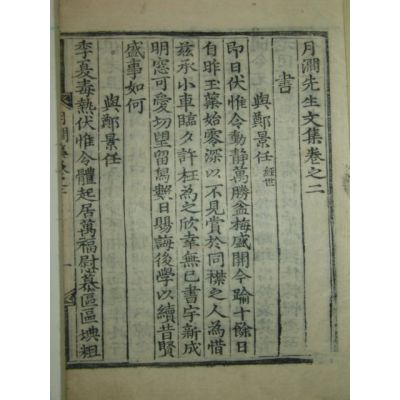 月澗先生文集卷之二
書
與鄭景任 經世
即日伏惟令動靜萬勝盆梅盛開今踰十餘日
自昨玉蘂始零深以不見賞於同襟之人為惜
茲承小車臨久許枉為之欣幸無已書宇新成
明窓可愛切望留駕數日賜誨後學以續昔賢
盛事如何
與鄭景任
季夏毒熱伏惟令體起居萬福尉慕區區㙉粗
月澗集卷之二